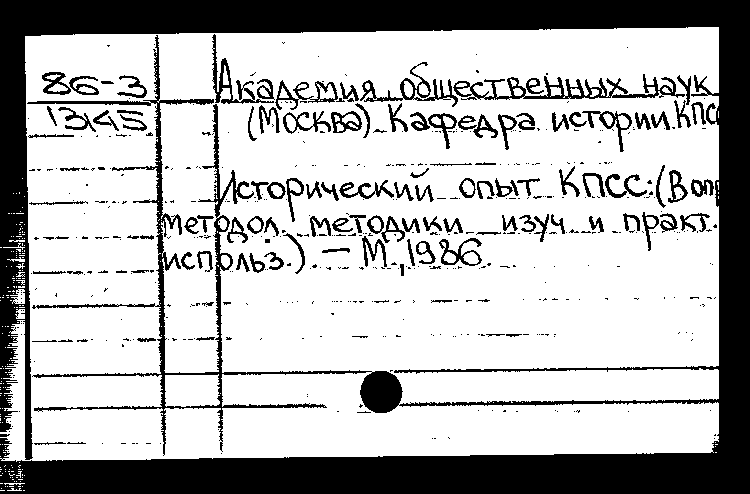 86-3
13145
Академия общественных наук
(Москва). Кафедра истории КПСС
Исторический опыт КПСС:(Вопр
методол. методики изуч и практ.
использ.).— М.,1986.